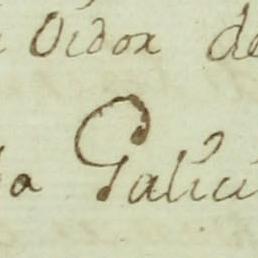 Oidor de
Galici